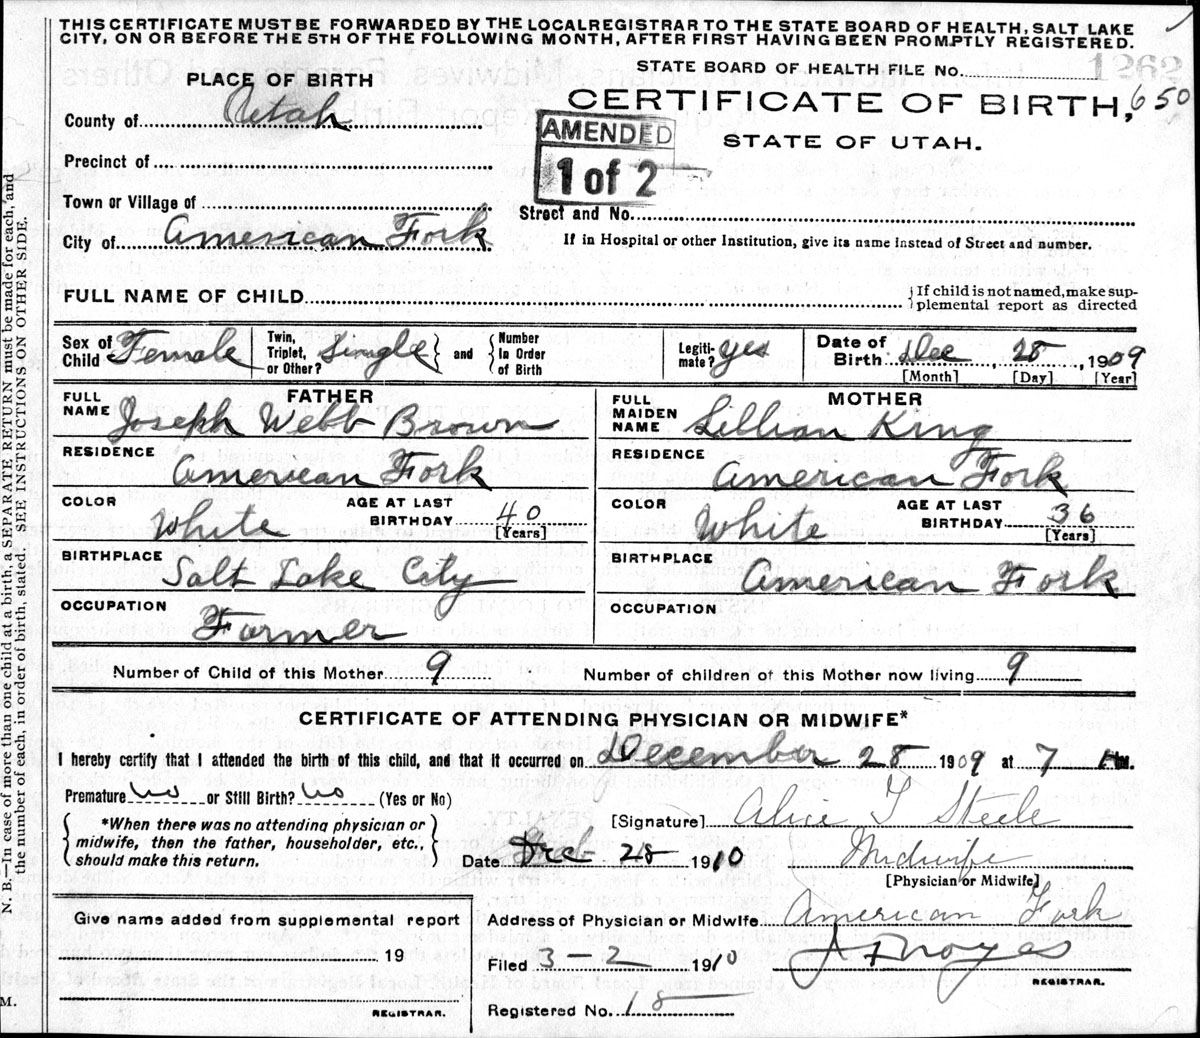 THIS CERTIFICATE MUST BE FORWARDED BY THE LOCAL REGISTRAR TO THE STATE BOARD OF HEALTH, SALT LAKE
CITY, ON OR BEFORE THE 5TH OF THE FOLLOWING MONTH, AFTER FIRST HAVING BEEN PROMPTLY REGISTERED.
STATE BOARD OF HEALTH FILE No. 1262
650
PLACE OF BIRTH
CERTIFICATE OF BIRTH,
STATE OF UTAH.
AMENDED
1 of 2
County of Utah
Precinct of
Town or Village of
Street and No.
City of American Fork
If in Hospital or other Institution, give its name instead of Street and number.
FULL NAME OF CHILD
{If child is not named, make sup-
plemental report as directed
Sex of Child Female
Twin, Triplet, or Other? Single } and { Number In Order of Birth
Legiti-mate? yes
Date of Birth Dec, 28, 1909
[Month] [Day] [Year]
FATHER
FULL NAME Joseph Webb Brown
RESIDENCE American Fork
COLOR White
AGE AT LAST BIRTHDAY 40 [Years]
BIRTHPLACE Salt Lake City
OCCUPATION Farmer
MOTHER
FULL MAIDEN NAME Lillian King
RESIDENCE American Fork
COLOR White
AGE AT LAST BIRTHDAY 36 [Years]
BIRTHPLACE American Fork
OCCUPATION
Number of Child of this Mother 9
Number of children of this Mother now living 9
CERTIFICATE OF ATTENDING PHYSICIAN OR MIDWIFE*
I hereby certify that I attended the birth of this child, and that it occurred on December 28 1909 at 7 M.
Premature no or Still Birth? no (Yes or No)
{ *When there was no attending physician or
midwife, then the father, householder, etc.,
should make this return. }
[Signature] Alice T Steele
Date Dec 28 1910
Midwife
[Physician or Midwife]
Give name added from supplemental report
19
REGISTRAR.
Address of Physician or Midwife American Fork
Filed 3-2 1910
Noyes
REGISTRAR.
Registered No. 18
N. B.—In case of more than one child at a birth, a SEPARATE RETURN must be made for each, and
the number of each, in order of birth, stated. SEE INSTRUCTIONS ON OTHER SIDE.
M.